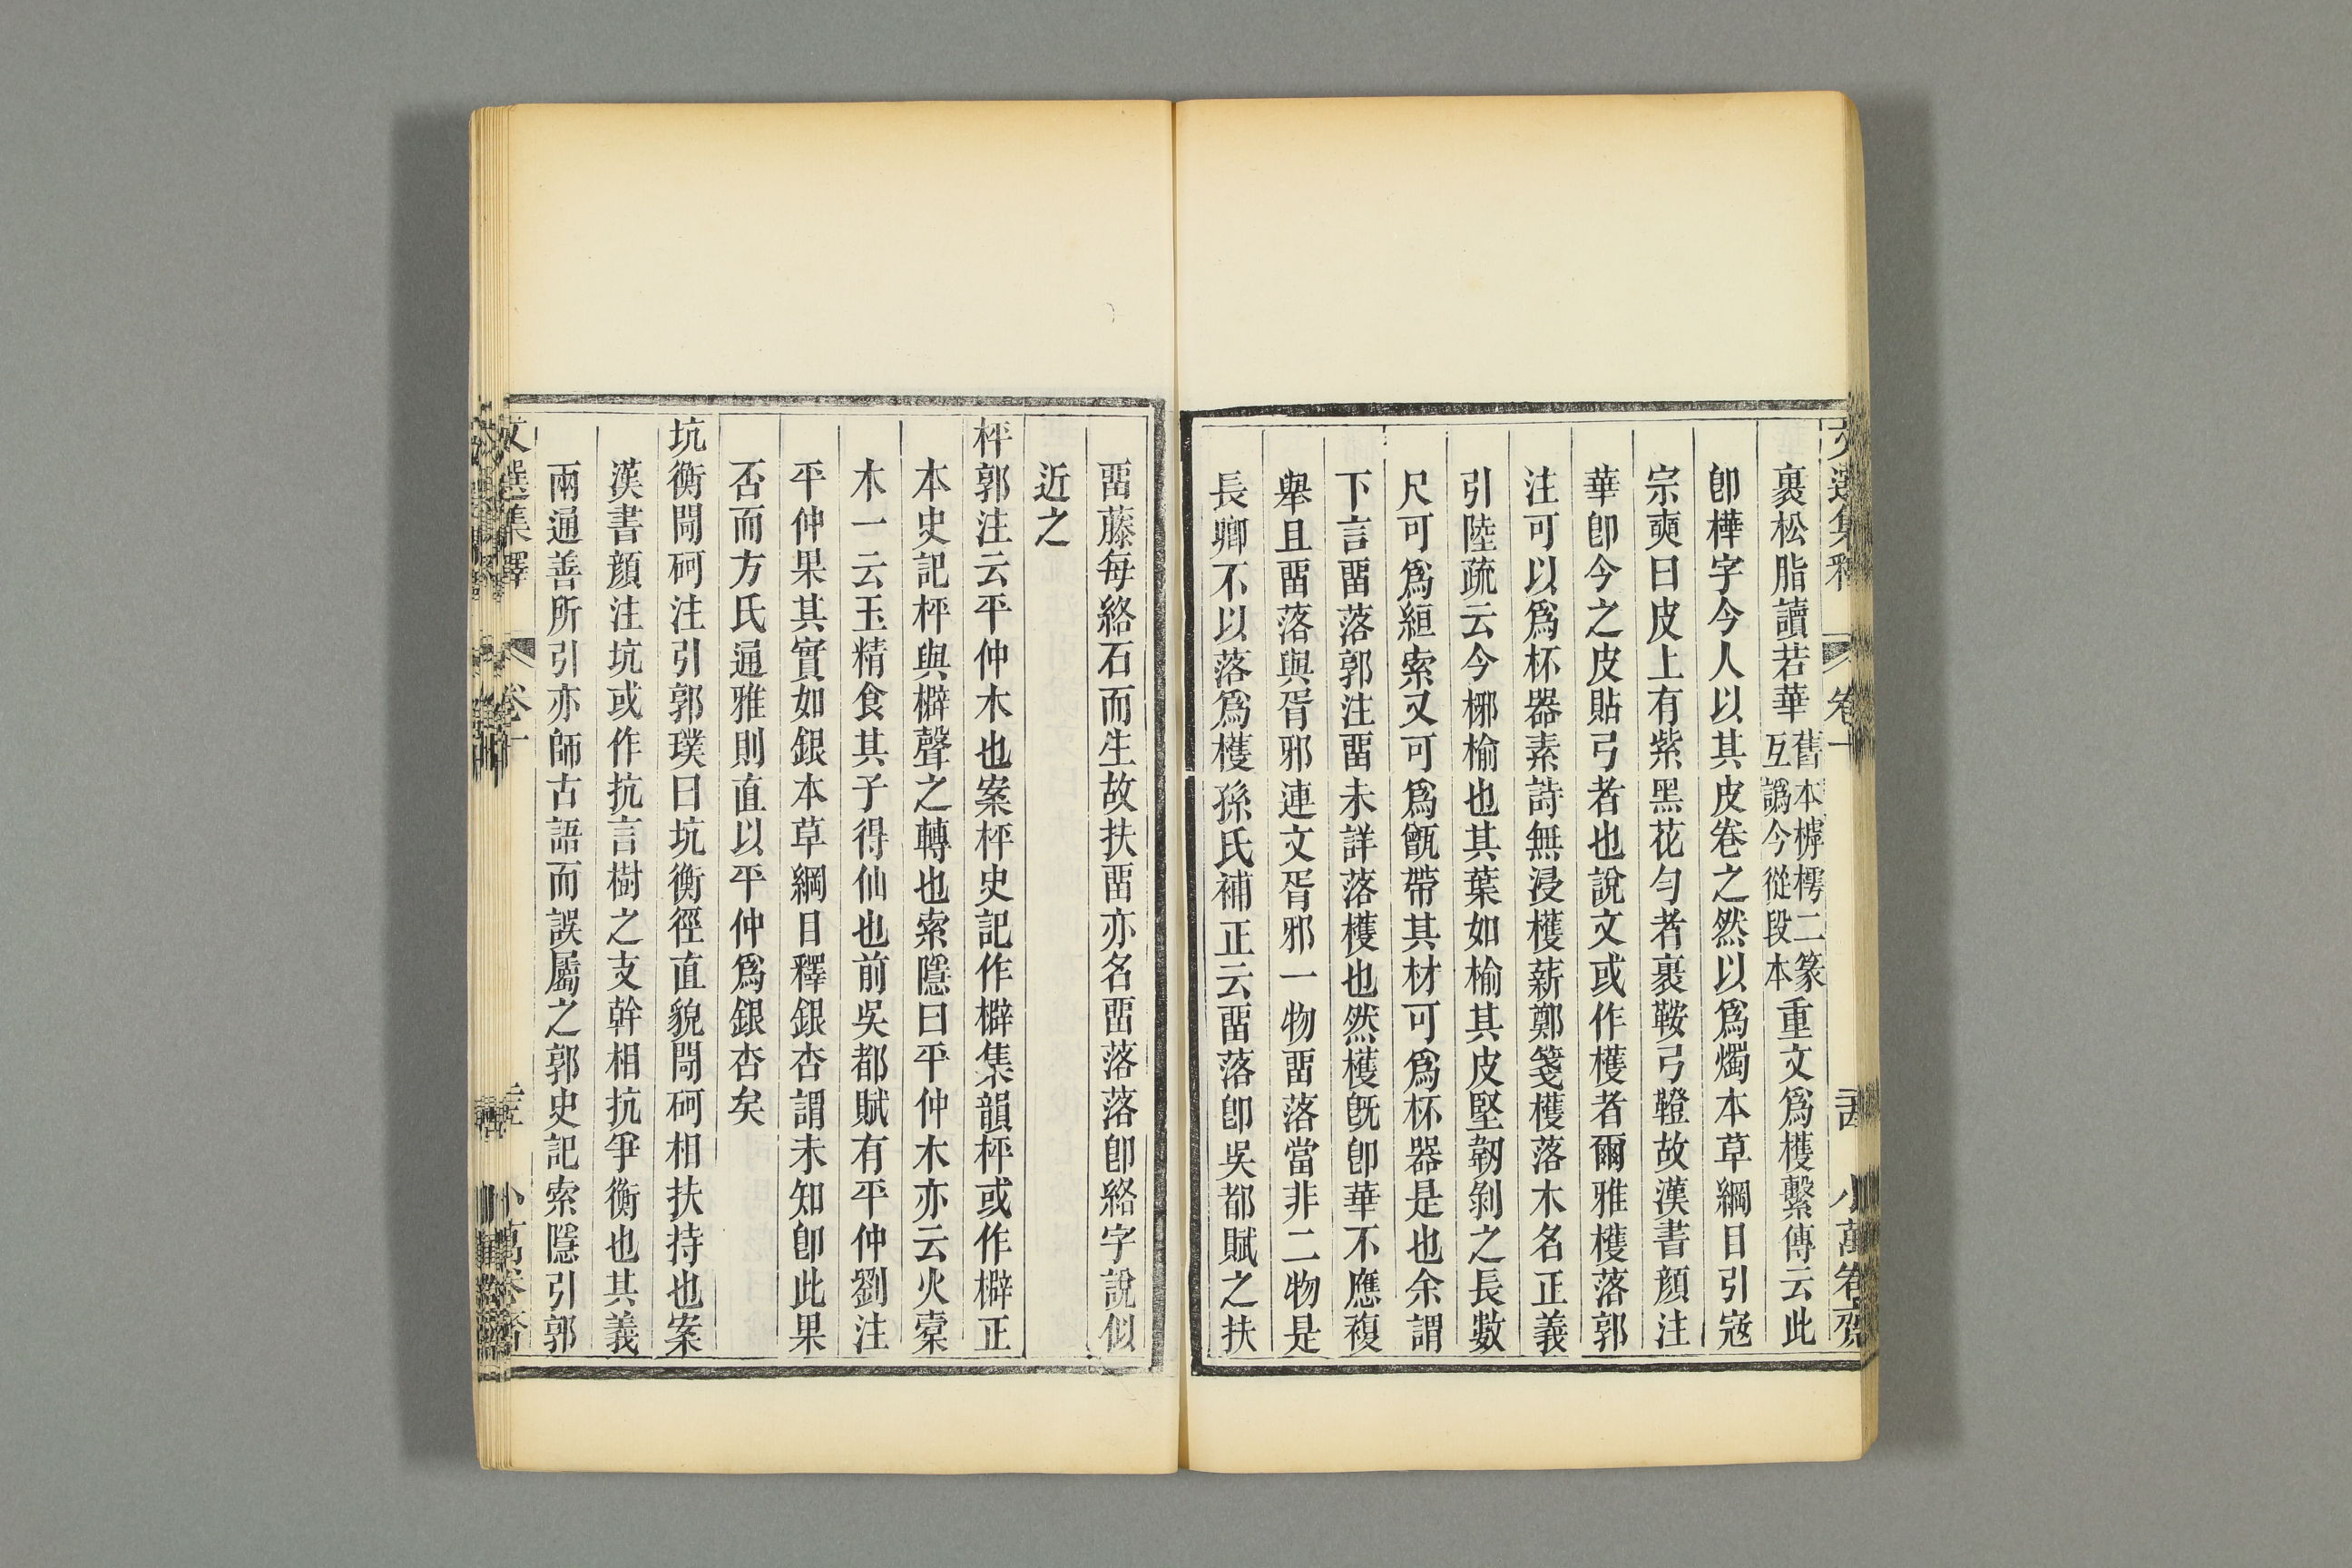 裹松脂讀若華舊本樗樗二篆互譌今從段本重文爲檴繫傳云此
卽樺字今人以其皮卷之然以爲燭本草綱目引寇
宗奭曰皮上有紫黑花匀者裹鞍弓鐙故漢書顏注
華卽今之皮貼弓者也說文或作檴者爾雅檴落郭
注可以爲杯器素詩無浸檴薪鄭箋檴落木名正義
引陸疏云今梛榆也其葉如榆其皮堅韌剝之長數
尺可爲絙索又可爲甑帶其材可爲杯器是也余謂
下言畱落郭注畱未詳落檴也然檴旣卽華不應複
舉且畱落與胥邪連文胥邪一物畱落當非二物是
長卿不以落爲檴孫氏補正云畱落卽吳都賦之扶
畱藤每絡石而生故扶畱亦名畱落落卽絡字說似
近之
枰郭注云平仲木也案枰史記作檘集韻枰或作檘正
本史記枰與檘聲之轉也索隱曰平仲木亦云火橐
木一云玉精食其子得仙也前吳都賦有平仲劉注
平仲果其實如銀本草綱目釋銀杏謂未知卽此果
否而方氏通雅則直以平仲爲銀杏矣
坑衡閜砢注引郭璞曰坑衡徑直貌閜砢相扶持也案
漢書顏注坑或作抗言樹之支幹相抗爭衡也其義
兩通善所引亦師古語而誤屬之郭史記索隱引郭
文選集釋 卷十